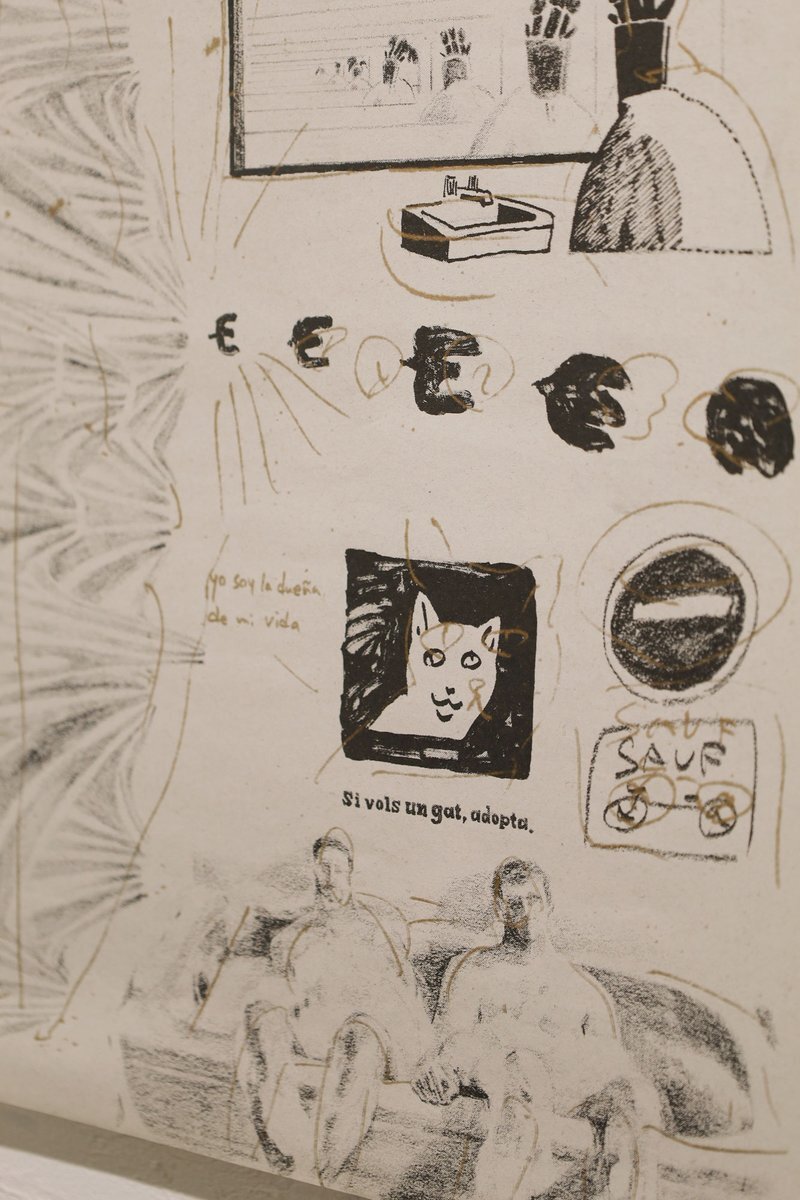 € € €
yo soy la dueña
de mi vida
Si vols un gat, adopta.
SAUF
SAUF